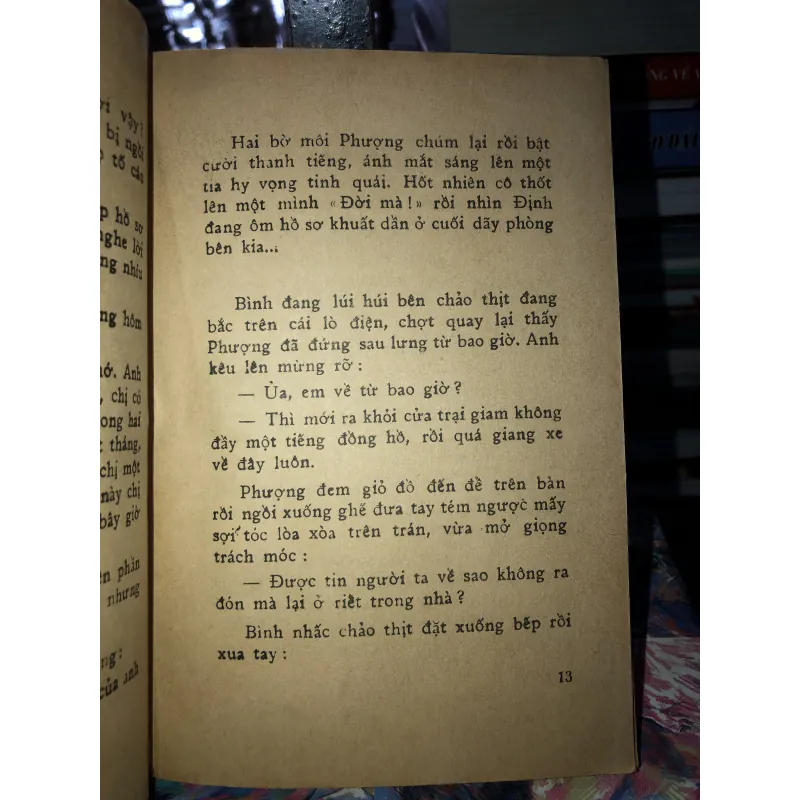 ời vậy?
bị ngồi
tố cáo
hồ sơ
nghe lời
ng nhíu
ng hôm
ớ. Anh
, chị có
ong hai
t tháng,
chị một
này chị
bây giờ
ên phần
nhưng
ng :
của anh
Hai bờ môi Phượng chúm lại rồi bật
cười thanh tiếng, ánh mắt sáng lên một
tia hy vọng tinh quái. Hốt nhiên cô thốt
lên một mình «Đời mà !» rồi nhìn Định
đang ôm hồ sơ khuất dần ở cuối dãy phòng
bên kia...
Bình đang lúi húi bên chảo thịt đang
bắc trên cái lò điện, chợt quay lại thấy
Phượng đã đứng sau lưng từ bao giờ. Anh
kêu lên mừng rỡ :
— Ủa, em về từ bao giờ ?
— Thì mới ra khỏi cửa trại giam không
đầy một tiếng đồng hồ, rồi quá giang xe
về đây luôn.
Phượng đem giỏ đồ đến để trên bàn
rồi ngồi xuống ghế đưa tay tém ngược mấy
sợi tóc lòa xòa trên trán, vừa mở giọng
trách móc :
— Được tin người ta về sao không ra
đón mà lại ở riết trong nhà ?
Bình nhấc chảo thịt đặt xuống bếp rồi
xua tay :
13
NG VỀ